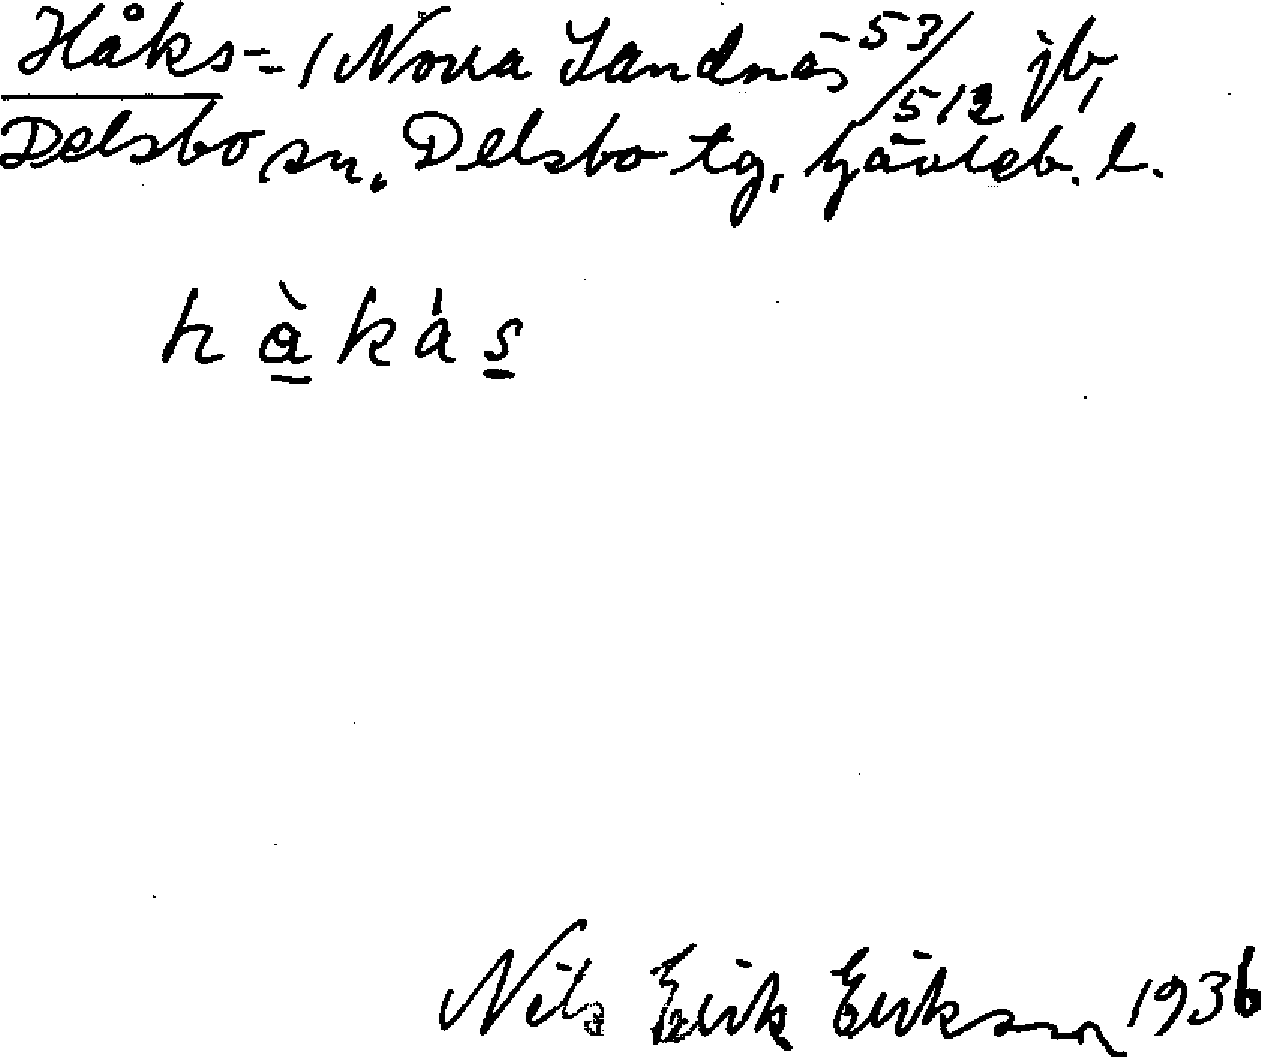 Håks= / Norra Sandnäs 53/512 jb,
Delsbo sn. Delsbo tg, Gävleb. l.
h å̀ k a̍ s
Nils Erik Erikson 1936